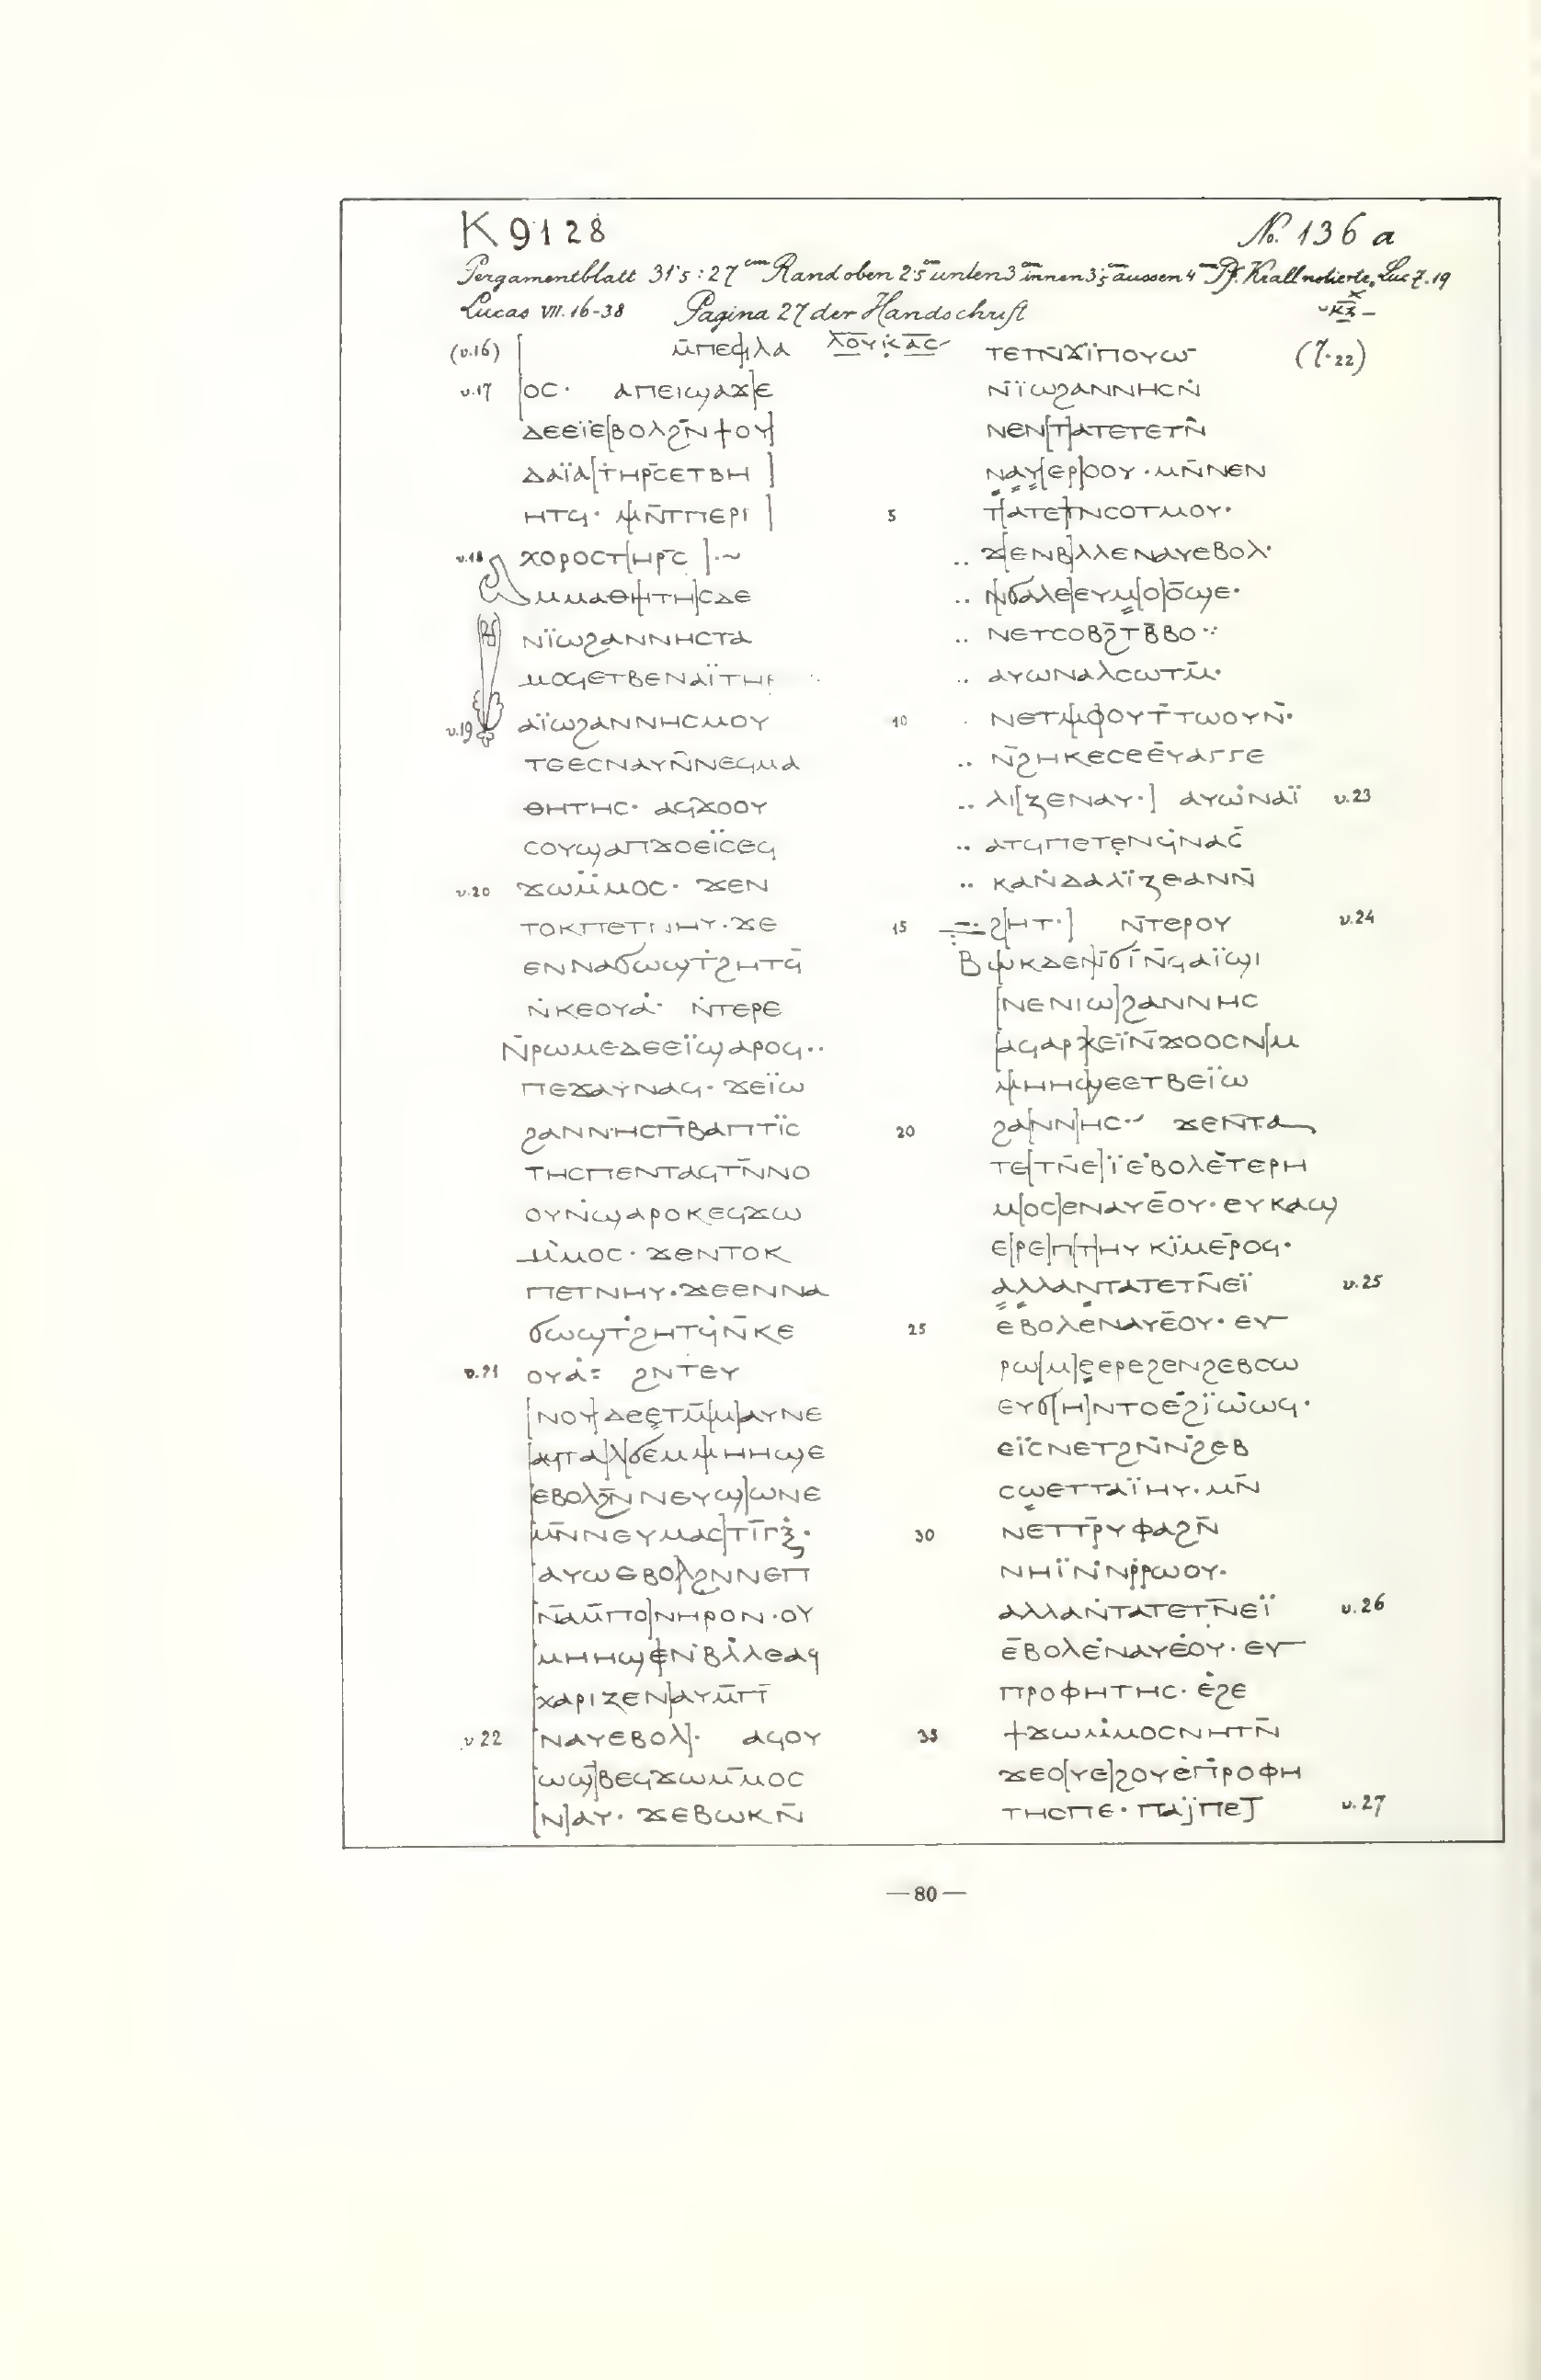 K 9128 No. 136 a
Pergamentblatt 31'5 : 27 cm Rand oben 2'5 cm unten 3 cm innen 3'5 cm aussen 4 cm Pf. Krall notierte, Luc 7.19
Lucas VII. 16-38 Pagina 27 der Handschrift ⲕⲍ
(v.16) ⲙ̄ⲡⲉϥⲗⲁ ⲗⲟⲩⲕⲁⲥ
v.17 ⲟⲥ· ⲁⲡⲉⲓϣⲁϫ]ⲉ
ⲇⲉⲉⲓ̈ⲉ[ⲃⲟⲗϩⲛ̄ϯⲟⲩ]
ⲇⲁⲓ̈ⲁ[ⲧⲏⲣ̄ⲥⲉⲧⲃⲏ]
ⲏⲧϥ· ⲙⲛ̄ⲧⲡⲉⲣⲓ]
v.18 ⲭⲟⲣⲟⲥⲧ[ⲏⲣ̄ⲥ]·~
ⲁⲙⲙⲁⲑⲏⲧⲏ]ⲥⲇⲉ
ⲛⲓ̈ⲱϩⲁⲛⲛⲏⲥⲧⲁ
ⲙⲟϥⲉⲧⲃⲉⲛⲁⲓ̈ⲧⲏⲣ
v.19 ⲁⲓ̈ⲱϩⲁⲛⲛⲏⲥⲙⲟⲩ
ⲧⲉⲉⲥⲛⲁⲩⲛ̄ⲛⲉϥⲙⲁ
ⲑⲏⲧⲏⲥ· ⲁϥϫⲟⲟⲩ
ⲥⲟⲩϣⲁⲡϫⲟⲉⲓ̈ⲥⲉϥ
v.20 ϫⲱⲙ̈ⲙⲟⲥ· ϫⲉⲛ
ⲧⲟⲕⲡⲉⲧⲛⲏⲩ·ϫⲉ
ⲉⲛⲛⲁϭⲱϣⲧ̇ϩⲏⲧϥ̄
ⲛ̇ⲕⲉⲟⲩⲁ̇· ⲛ̇ⲧⲉⲣⲉ
ⲛ̄ⲣⲱⲙⲉⲇⲉⲉⲓ̈ϣⲁⲣⲟϥ··
ⲡⲉϫⲁⲩⲛⲁϥ· ϫⲉⲓ̈ⲱ
ϩⲁⲛⲛⲏⲥⲡ̄ⲃⲁⲡⲧⲓ̈ⲥ
ⲧⲏⲥⲡⲉⲛⲧⲁϥⲧⲛ̄ⲛⲟ
ⲟⲩⲛ̇ϣⲁⲣⲟⲕⲉϥϫⲱ
ⲙ̇ⲙⲟⲥ· ϫⲉⲛⲧⲟⲕ
ⲡⲉⲧⲛⲏⲩ·ϫⲉⲉⲛⲛⲁ
ϭⲱϣⲧ̇ϩⲏⲧϥ̇ⲛ̄ⲕⲉ
v.21 ⲟⲩⲁ̇: ϩⲛⲧⲉⲩ
[ⲛⲟⲩ]ⲇⲉⲉⲧⲙ̄[ⲙ]ⲁⲩⲛⲉ
[ⲁϥⲧⲁ]ⲗϭⲉⲙⲙⲏⲏϣⲉ
[ⲉⲃⲟⲗϩⲛ̄ⲛⲉⲩϣ]ⲱⲛⲉ
[ⲙⲛ̄ⲛⲉⲩⲙⲁⲥ]ⲧⲓ̄ⲅⲝ̇·
[ⲁⲩⲱⲉⲃⲟⲗ]ϩⲛⲛⲉⲡ
[ⲛ̄ⲁⲙ̄ⲡⲟ]ⲛⲏⲣⲟⲛ·ⲟⲩ
[ⲙⲏⲏϣⲉⲛ̇ⲃⲗ̇ⲗⲉⲁϥ
[ⲭⲁⲣⲓⲍⲉⲛ]ⲁⲩⲙ̄ⲡ̄
v.22 [ⲛⲁⲩⲉⲃⲟⲗ]· ⲁϥⲟⲩ
[ⲱϣ]ⲃⲉϥϫⲱⲙ̄ⲙⲟⲥ
[ⲛ]ⲁⲩ· ϫⲉⲃⲱⲕⲛ̄
ⲧⲉⲧⲛ̄ϫⲓ̈ⲡⲟⲩⲱ (7.22)
ⲛ̄ⲓ̈ⲱϩⲁⲛⲛⲏⲥⲛ̇
ⲛⲉⲛ[ⲧ]ⲁⲧⲉⲧⲉⲧⲛ̄
ⲛⲁⲩ[ⲉⲣ]ⲟⲟⲩ·ⲙⲛ̄ⲛⲉⲛ
5 ⲧ[ⲁⲧⲉⲧ]ⲛⲥⲟⲧⲙⲟⲩ·
.. ϫ[ⲉⲛⲃ]ⲗⲗⲉⲛⲁⲩⲉⲃⲟⲗ·
.. ⲛϭⲁⲗⲉ]ⲉⲩⲙ[ⲟ]ⲟ̄ϣⲉ·
.. ⲛⲉⲧⲥⲟⲃϩ̄ⲧⲃ̄ⲃⲟ··
.. ⲁⲩⲱⲛⲁⲗⲥⲱⲧⲙ̄·
10 . ⲛⲉⲧⲙⲟⲟⲩⲧ̄ⲧⲱⲟⲩⲛ̄·
.. ⲛ̄ϩⲏⲕⲉⲥⲉⲉ̄ⲩⲁⲅⲅⲉ
.. ⲗⲓ[ⲍⲉⲛⲁⲩ·] ⲁⲩⲱⲛ̇ⲁⲓ̈ v.23
.. ⲁⲧϥⲡⲉⲧⲉⲛϥ̇ⲛⲁⲥ̄
.. ⲕⲁⲛ̇ⲇⲁⲗⲓ̈ⲍⲉⲁⲛⲛ̄
15 ϩ[ⲏⲧ·] ⲛ̄ⲧⲉⲣⲟⲩ v.24
ⲃⲱⲕⲇⲉⲛ̄ϭⲓ̄ⲛ̄ϥⲁⲓ̈ϣⲓ
[ⲛⲉⲛⲓⲱ]ϩⲁⲛⲛⲏⲥ
[ⲁϥⲁⲣ]ⲭⲉⲓ̈ⲛ̄ϫⲟⲟⲥⲛ[ⲙ
ⲙⲏⲏϣⲉⲉⲧⲃⲉⲓ̈ⲱ
20 ϩⲁ[ⲛⲛ]ⲏⲥ·· ϫⲉⲛ̄ⲧⲁ
ⲧⲉ[ⲧⲛ̄ⲉ]ⲓ̈ⲉ̇ⲃⲟⲗⲉ̇ⲧⲉⲣⲏ
ⲙ[ⲟⲥ]ⲉⲛⲁⲩⲉ̄ⲟⲩ·ⲉⲩⲕⲁϣ
ⲉ[ⲣⲉ]ⲡ[ⲧ]ⲏⲩⲕⲓ̈ⲙⲉ̄ⲣⲟϥ·
ⲁⲗⲗⲁⲛⲧⲁⲧⲉⲧⲛ̄ⲉⲓ̈ v.25
25 ⲉⲃⲟⲗⲉⲛⲁⲩⲉ̄ⲟⲩ·ⲉⲩ
ⲣⲱ[ⲙ]ⲉⲉⲣⲉϩⲉⲛϩⲉⲃⲥⲱ
ⲉⲩϭ[ⲏ]ⲛⲧⲟⲉ̇ϩⲓ̈ⲱ̇ⲱϥ·
ⲉⲓ̈ⲥⲛⲉⲧϩⲛ̄ⲛ̄ϩⲉⲃ
ⲥⲱⲉⲧⲧⲁⲓ̈ⲏⲩ·ⲙⲛ̄
30 ⲛⲉⲧⲧⲣ̄ⲩⲫⲁϩⲛ̄
ⲛⲏⲓ̈ⲛ̇ⲛⲣ̇ⲣⲱⲟⲩ·
ⲁⲗⲗⲁⲛ̇ⲧⲁⲧⲉⲧⲛ̄ⲉⲓ̈ v.26
ⲉ̄ⲃⲟⲗⲉ̇ⲛⲁⲩⲉ̇ⲟⲩ·ⲉⲩ
ⲡⲣⲟⲫⲏⲧⲏⲥ· ⲉ̇ϩⲉ
35 ϯϫⲱⲙ̇ⲙⲟⲥⲛⲏⲧⲛ̄
ϫⲉⲟ[ⲩⲉ]ϩⲟⲩⲉ̇ⲡ̄ⲣⲟⲫⲏ
ⲧⲏⲥⲡⲉ·ⲡⲁⲓ̈ⲡⲉⲧ v.27
— 80 —